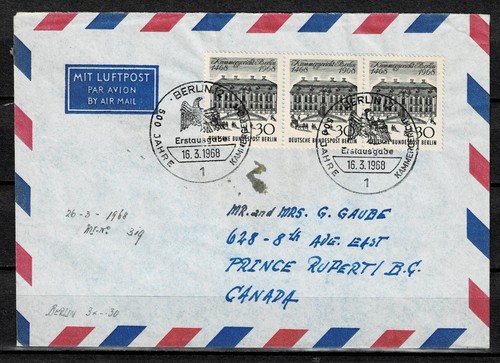 MIT LUFTPOST
PAR AVION
BY AIR MAIL
Kammergericht Berlin
1468 1968
30
DEUTSCHE BUNDESPOST BERLIN
Kammergericht Berlin
1468 1968
30
DEUTSCHE BUNDESPOST BERLIN
Kammergericht Berlin
1468 1968
30
DEUTSCHE BUNDESPOST BERLIN
BERLIN 12
500 JAHRE
Erstausgabe
16.3.1968
1
BERLIN 12
500 JAHRE
KAMMERGERICHT
Erstausgabe
16.3.1968
1
MR. and MRS. G. GAUBE
628 - 8th AVE. EAST
PRINCE RUPERT / B.C.
CANADA
1968
319
BERLIN 3x-30